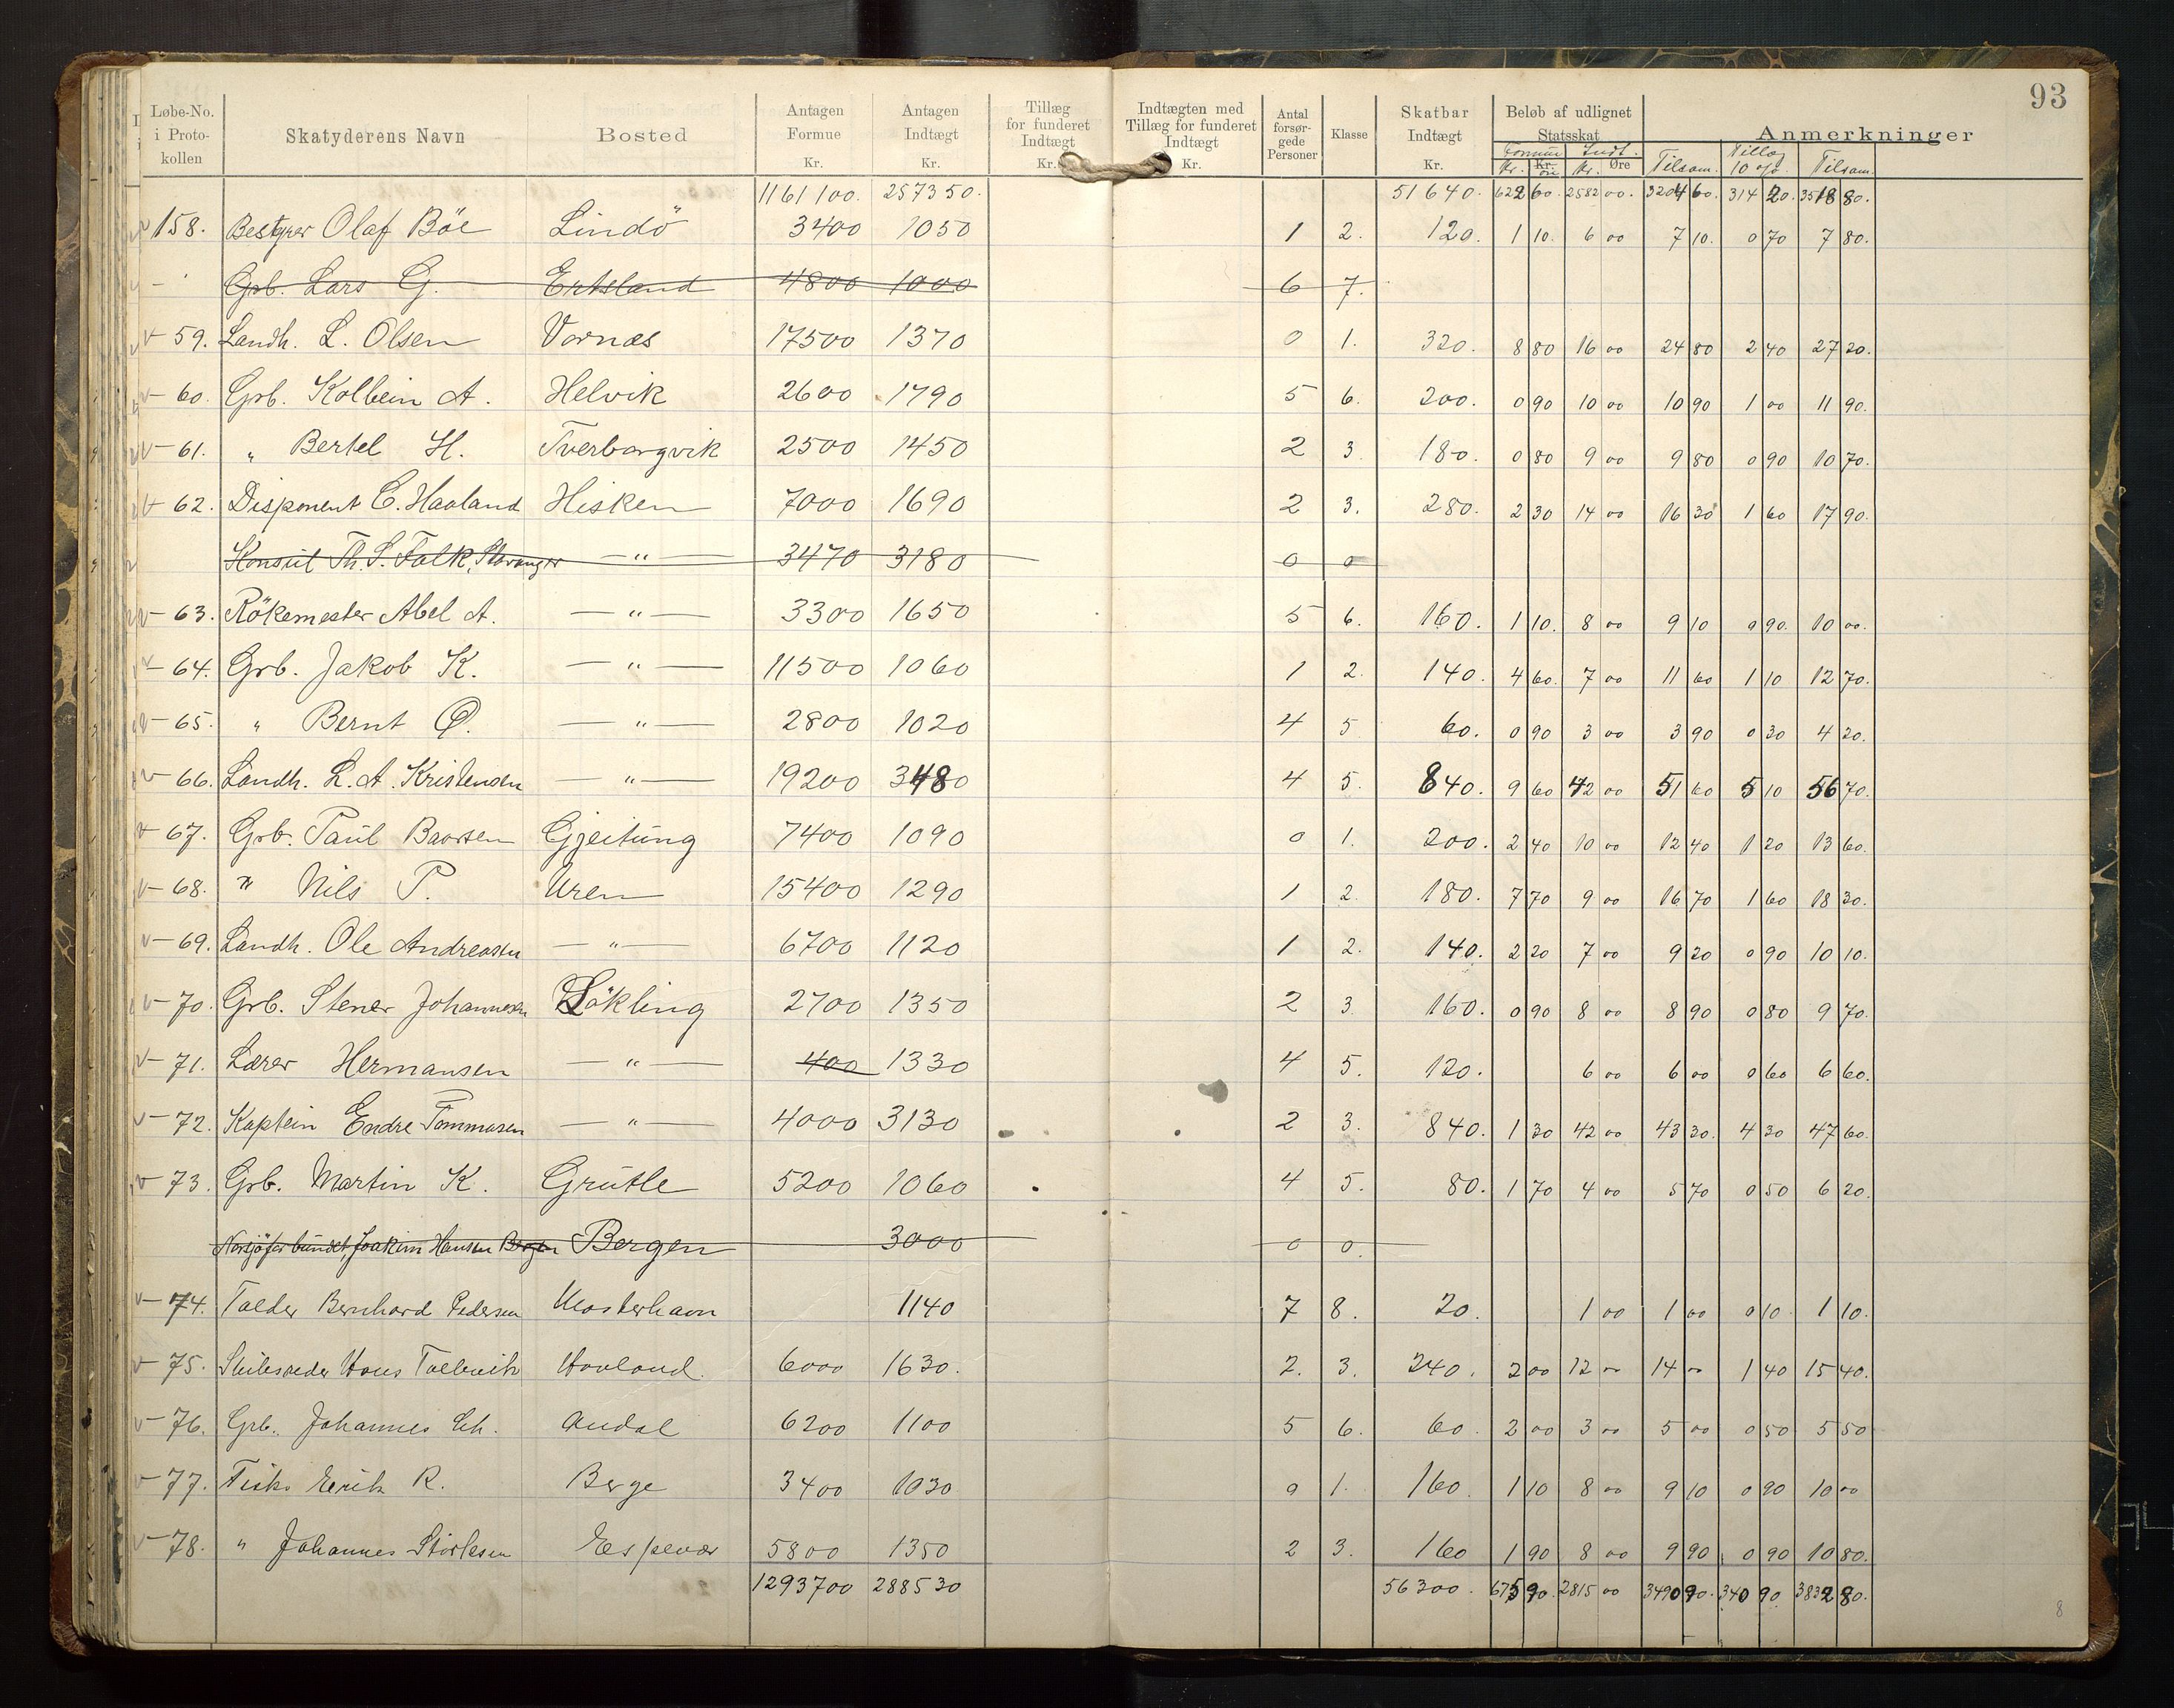 93
Løbe-No. i Proto-kollen | Skatyderens Navn | Bosted | Antagen Formue Kr. | Antagen Indtægt Kr. | Tillæg for funderet Indtægt Kr. | Indtægten med Tillæg for funderet Indtægt Kr. | Antal forsør-gede Personer | Klasse | Skatbar Indtægt Kr. | Beløb af udlignet Statsskat Formue Kr. Øre Indt. Kr. Øre | Anmerkninger Tilsam. | Tillæg 10 % | Tilsam.
1161100. 257350. 51640. 622 60. 2582 00. 3204 60. 314 20. 3518 80.
158. Bestyrer Olaf Böe Lindö 3400 1050 1 2. 120. 1 10. 6 00 7 10. 0 70 7 80.
Grb. Lars G. Ertsland 4800 1000 6 7.
59. Landh. L. Olsen Vornæs 17500 1370 0 1. 320. 8 80 16 00 24 80 2 40 27 20.
60. Grb. Kolbein A. Helvik 2600 1790 5 6. 200. 0 90 10 00 10 90 1 00 11 90.
61. " Bertel H. Tverborgvik 2500 1450 2 3. 180. 0 80 9 00 9 80 0 90 10 70.
62. Disponent C. Haaland Hisken 7000 1690 2 3. 280. 2 30 14 00 16 30 1 60 17 90.
Konsul Th. S. Falk, Stavanger — " — 3470 3180 0 0
63. Rökemester Abel A. — " — 3300 1650 5 6. 160. 1 10. 8 00 9 10 0 90. 10 00.
64. Grb. Jakob K. — " — 11500 1060 1 2. 140. 4 60. 7 00 11 60 1 10 12 70.
65. " Bernt Ø. — " — 2800 1020 4 5 60. 0 90 3 00 3 90 0 30 4 20.
66. Landh. L. A. Kristensen — " — 19200 3480 4 5. 840. 9 60 42 00 51 60 5 10 56 70.
67. Grb. Paul Baarsen Gjeitung 7400 1090 0 1. 200. 2 40 10 00 12 40 1 20 13 60.
68. " Nils P. Uren 15400 1290 1 2. 180. 7 70 9 00 16 70 1 60 18 30.
69. Landh. Ole Andreassen — " — 6700 1120 1 2. 140. 2 20 7 00 9 20 0 90 10 10.
70. Grb. Stener Johannesen Lökling 2700 1350 2 3. 160. 0 90 8 00 8 90 0 80 9 70.
71. Lærer Hermansen — " — 400 1330 4 5. 120. 6 00 6 00 0 60 6 60.
72. Kaptein Endre Tommasen — " — 4000 3130 2 3. 840. 1 30 42 00 43 30. 4 30 47 60.
73. Grb. Martin K. Grutle 5200 1060 4 5. 80. 1 70 4 00 5 70 0 50 6 20.
Joakim Hansen Bergen Bergen 3000 0 0.
74. Tolder Bernhard Pedersen Mosterhavn 1140 7 8. 20. 1 00 1 00 0 10 1 10.
75. Skibsreder Hans Tollevik Hovland. 6000 1630. 2. 3. 240. 2 00 12 00 14 00 1 40 15 40.
76. Grb. Johannes Ch. Andal 6200 1100 5 6. 60. 2 00 3 00 5 00 0 50 5 50
77. Fisk. Eerik R. Berge 3400 1030 0 1. 160. 1 10 8 00 9 10 0 90 10 00
78. " Johannes Störksen Espevær 5800 1350 2 3. 160 1 90 8 00 9 90 0 90 10 80.
1293700 288530 56300. 675 90. 2815 00 3490 90. 340 90 3832 80.
8